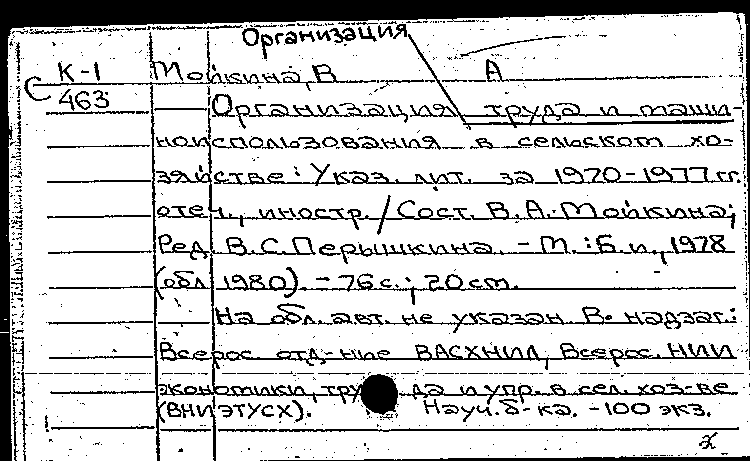 Организация
К-1 Мойкина, В А
С 463 Организация труда и маши-
ноиспользования в сельском хо-
зяйстве: Указ. лит. за 1970-1977 гг.
отеч., иностр./Сост. В.А. Мойкина;
Ред. В.С. Перышкина. - М.: Б.и., 1978
(обл 1980). - 76 с.; 20 см.
На обл. авт. не указан. В. надзаг.:
Всерос. отд-ние ВАСХНИЛ, Всерос. НИИ
экономики, труда и упр. в сел. хоз-ве
(ВНИЭТУСХ). Науч. б-ка. - 100 экз.